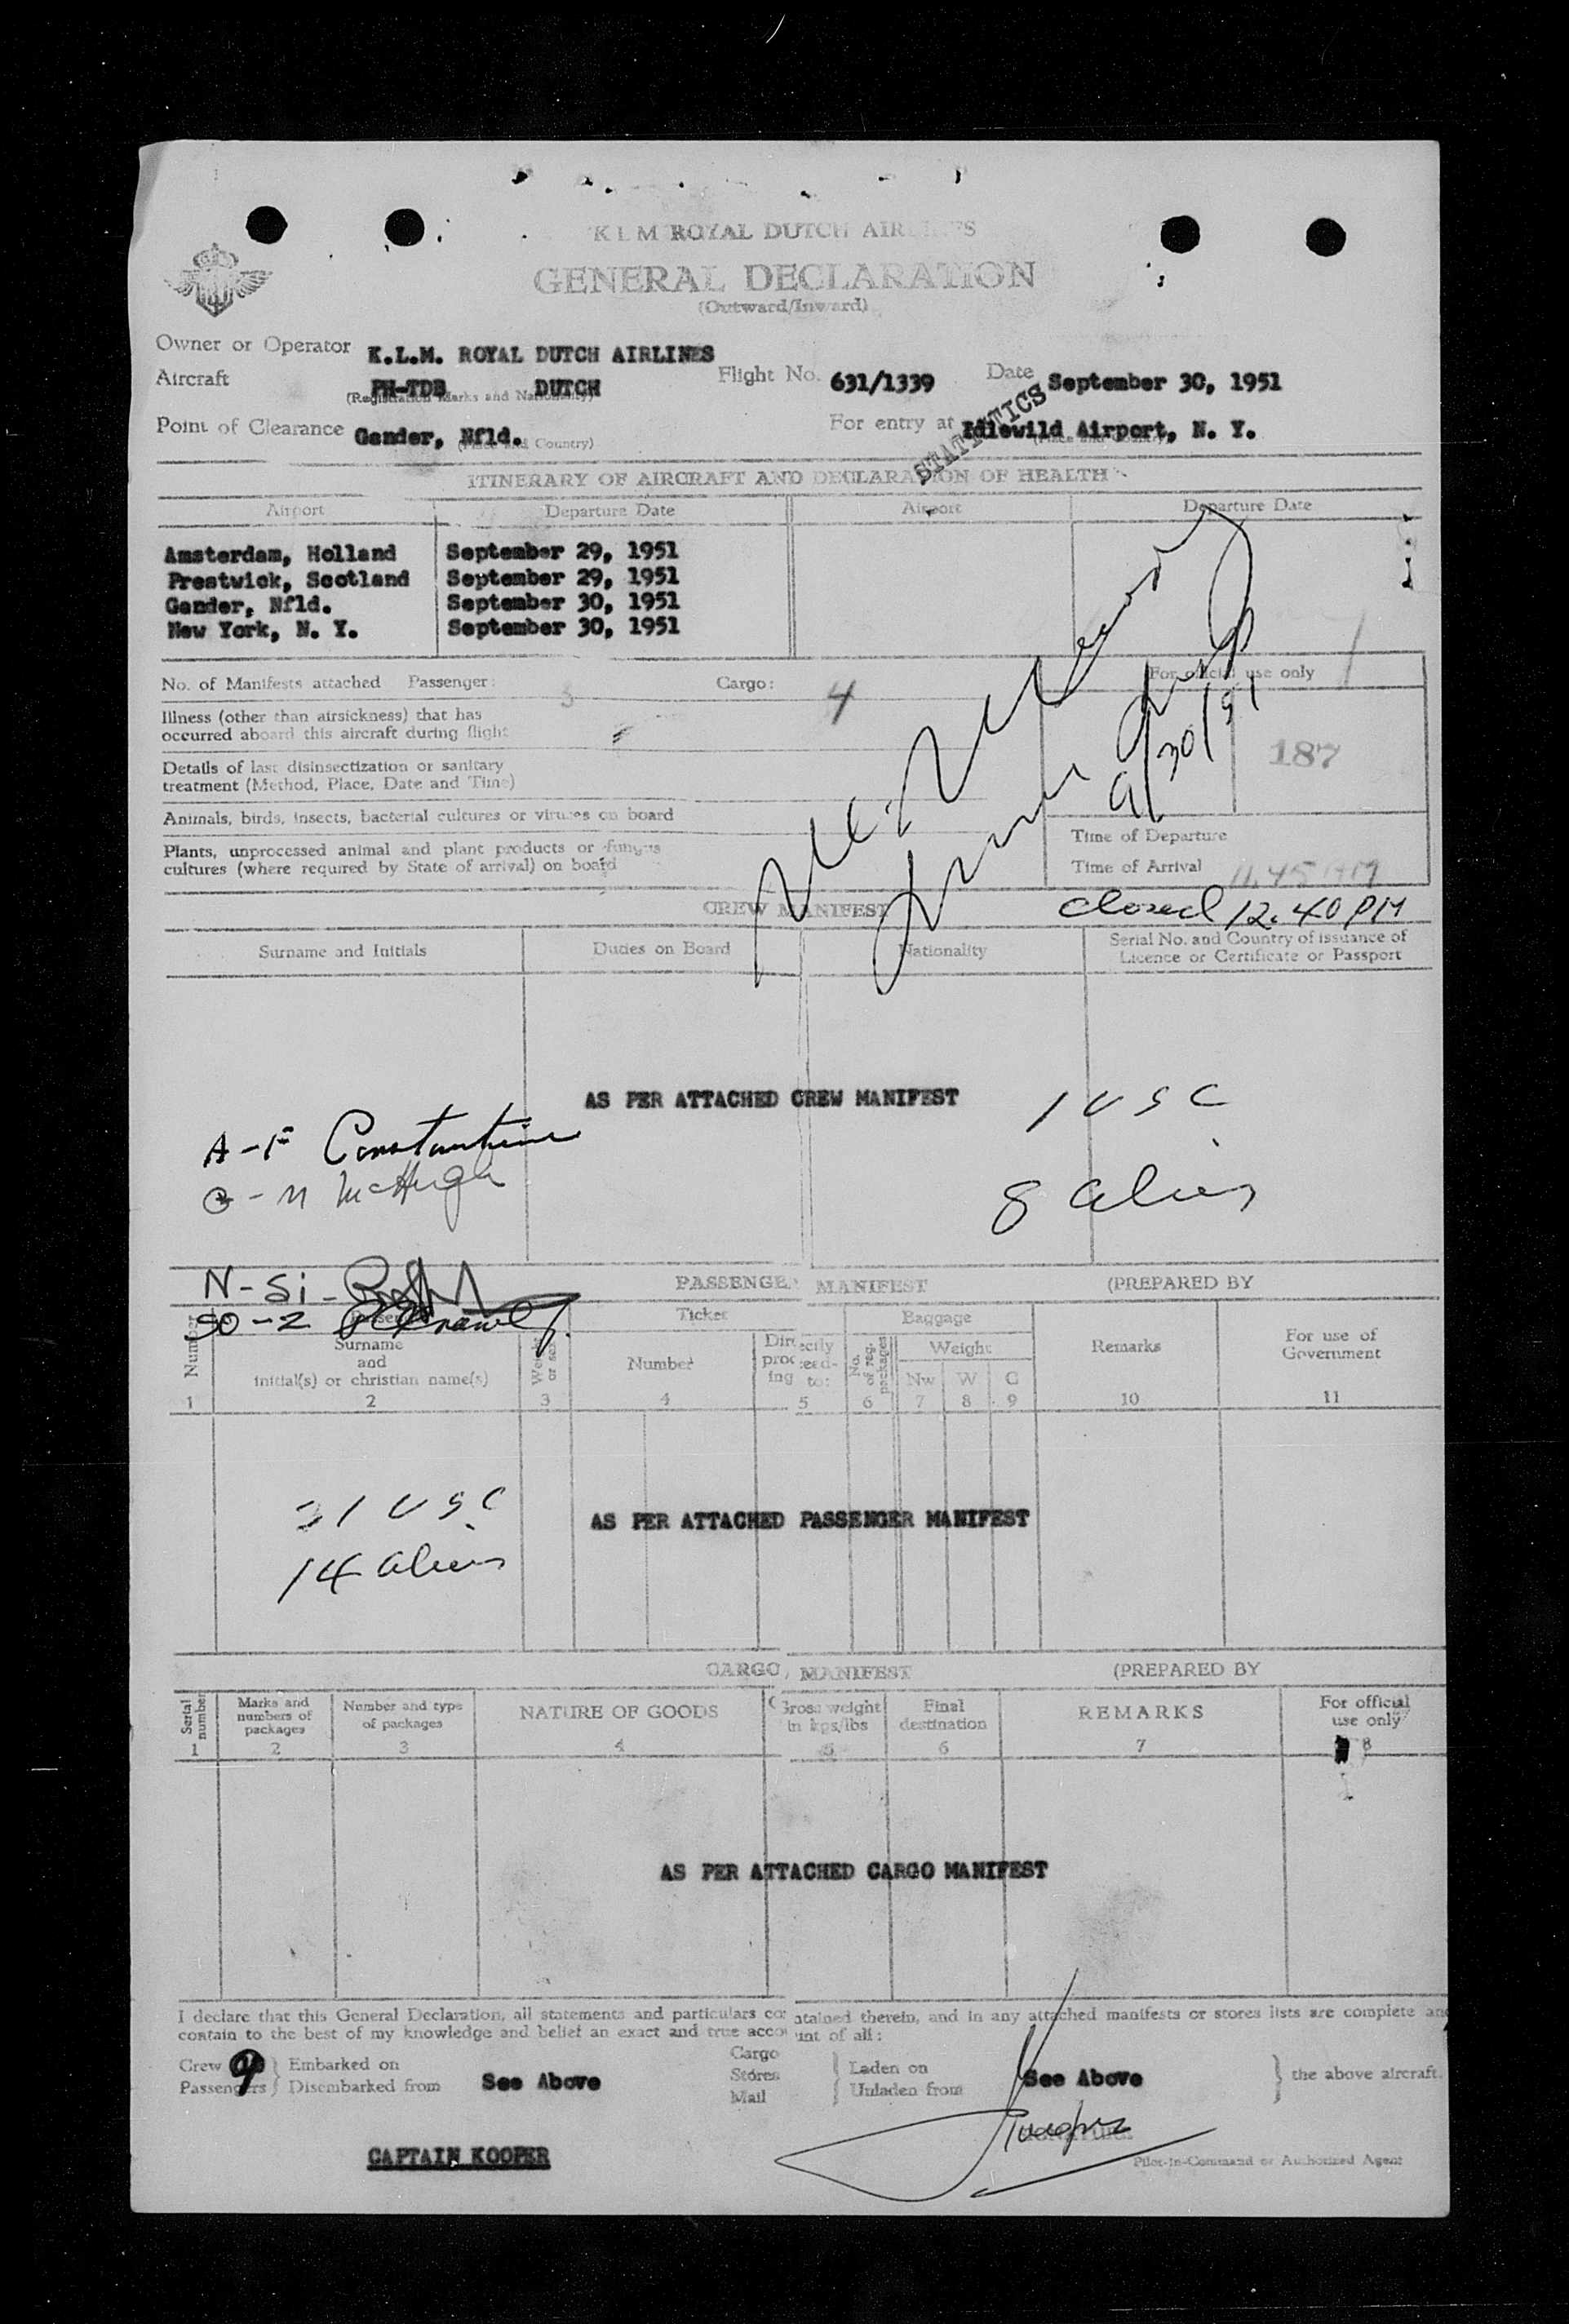 K L M ROYAL DUTCH AIRLINES
GENERAL DECLARATION
(Outward/Inward)
Owner or Operator K.L.M. ROYAL DUTCH AIRLINES
Aircraft PH-TDB DUTCH Flight No. 631/1339 Date September 30, 1951
(Registration Marks and Nationality)
Point of Clearance Gander, Nfld. For entry at Idlewild Airport, N. Y.
(Place and Country)
STATISTICS
ITINERARY OF AIRCRAFT AND DECLARATION OF HEALTH
Airport Departure Date Airport Departure Date
Amsterdam, Holland September 29, 1951
Prestwick, Scotland September 29, 1951
Gander, Nfld. September 30, 1951
New York, N. Y. September 30, 1951
No. of Manifests attached Passenger: 3 Cargo: 4 For official use only
Illness (other than airsickness) that has
occurred aboard this aircraft during flight
9/30/51
187
Details of last disinsectization or sanitary
treatment (Method, Place, Date and Time)
Animals, birds, insects, bacterial cultures or viruses on board
Plants, unprocessed animal and plant products or fungus
cultures (where required by State of arrival) on board
Time of Departure
Time of Arrival 11.45 AM
closed 12.40 PM
CREW MANIFEST
Surname and Initials Duties on Board Nationality Serial No. and Country of issuance of
Licence or Certificate or Passport
AS PER ATTACHED CREW MANIFEST 1 USC
A-F Constantine
McHugh 8 aliens
N-Si-
PASSENGER MANIFEST (PREPARED BY
SO-2
Number Surname
and
initial(s) or christian name(s) Weight or sex Ticket Number Directly proceeding to: Baggage No. of reg. packages Weight Nw W C Remarks For use of
Government
1 2 3 4 5 6 7 8 9 10 11
31 USC
AS PER ATTACHED PASSENGER MANIFEST
14 aliens
CARGO MANIFEST (PREPARED BY
Serial number Marks and numbers of packages Number and type of packages NATURE OF GOODS Gross weight in kgs/lbs Final destination REMARKS For official use only
1 2 3 4 5 6 7 8
AS PER ATTACHED CARGO MANIFEST
I declare that this General Declaration, all statements and particulars contained therein, and in any attached manifests or stores lists are complete and
contain to the best of my knowledge and belief an exact and true account of all:
Crew 9 Embarked on Cargo Laden on
Passengers Disembarked from See Above Stores Unladen from See Above the above aircraft.
Mail
CAPTAIN KOOPER
Pilot-in-Command or Authorized Agent